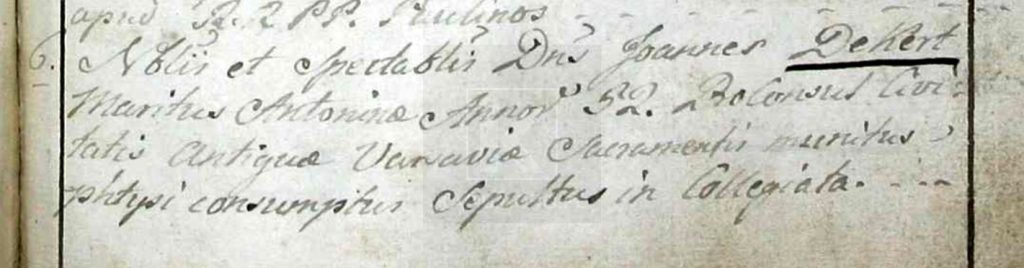 apud R. R PP. Paulinos
6. Nobłis et Spectablis Dn̄s Joannes DeKert
Maritus Antoninæ Annor 52. ProConsul Civi-
tatis Antiquæ Varsaviæ Sacramentis munitus
phtysi consumptus Sepultus in Collegiata.